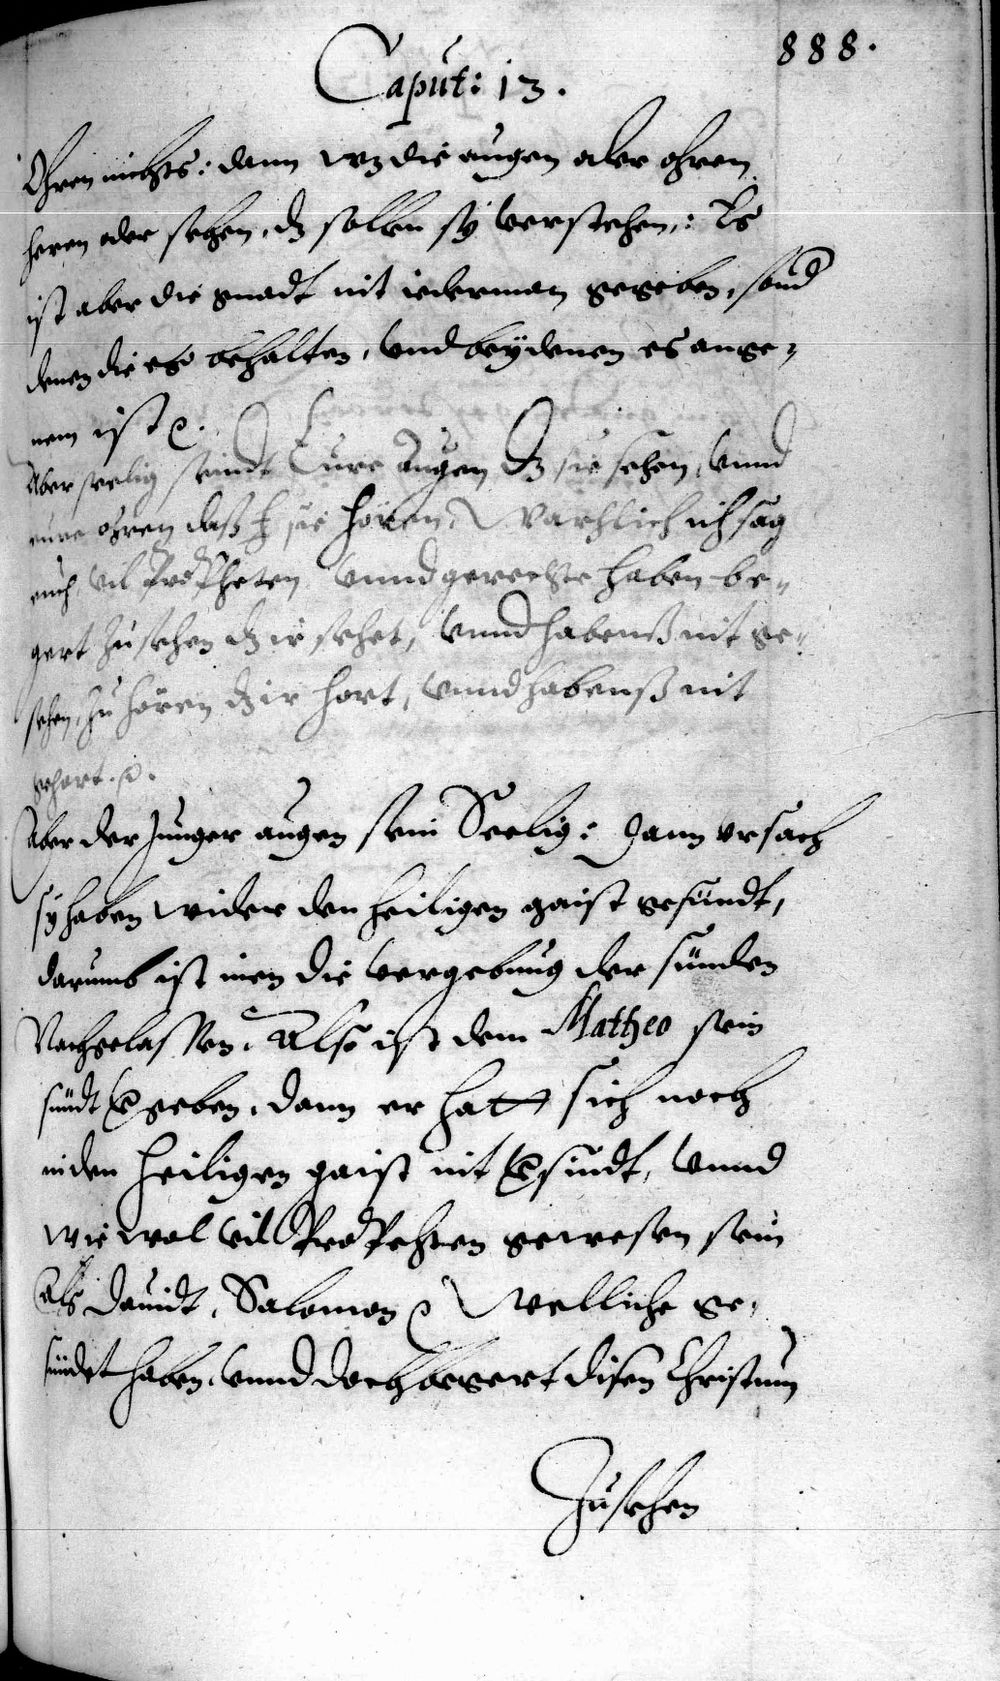 888.
Caput: 13.
Ohren nichts: dann wz die augen oder ohren
heren oder sehen, dz sollen sy verstehen,: Es
ist aber die gnadt nit iederman gegeben, sond
denen die es behalten, vnd beÿ denen es ange-
nem ist ꝛc.
Aber seelig seindt Eure Augen dz sie sehen, vnnd
eure ohren daß sie hören. Warhlich ich sag
euch vil Propheten vnnd gerechte haben be-
gert zu sehen dz ir sehet, vnnd habenß nit ge-
sehen, zu hören dz ir hort, vnnd habenß nit
gehort. ꝛc.
Aber der Junger augen sein Seelig: Dann vrsach
sy haben wider den heiligen gaist gesündt,
darumb ist inen die vergebung der sünden
Nachgelassen. Also ist dem Matheo sein
sündt vergeben, dann er hatt sich noch
in den heiligen gaist nit versindt, vnnd
wie wol vil Propheten gewesen sein
Als Dauidt, Salomon ꝛc Welliche ge-
sündet haben, vnnd doch begert disen Christum
Zusehen